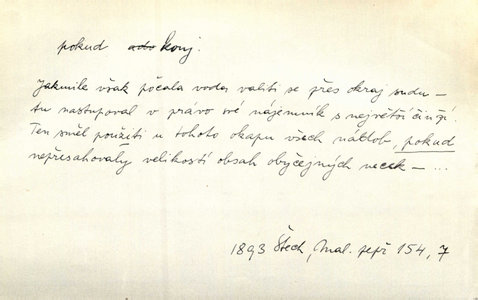 pokud konj.
Jakmile však počala voda valiti se přes okraj sudu —
tu nastupoval v právo své nájemník s největší činží.
Ten směl použíti u tohoto okapu všech nádob, pokud
nepřesahovaly velikostí obsah obyčejných necek — ...
1893 Štech, Mal. 154, 7